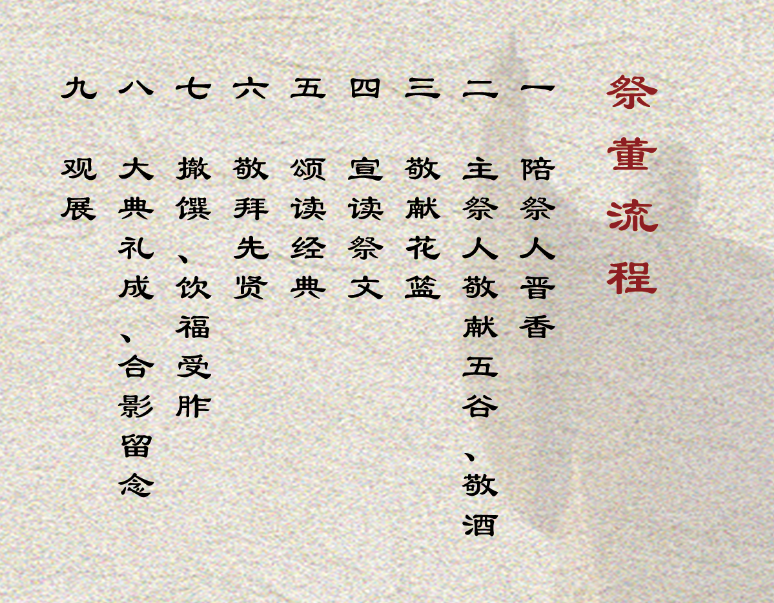 祭董流程
一 陪祭人晋香
二 主祭人敬献五谷、敬酒
三 敬献花篮
四 宣读祭文
五 颂读经典
六 敬拜先贤
七 撤馔、饮福受胙
八 大典礼成、合影留念
九 观展